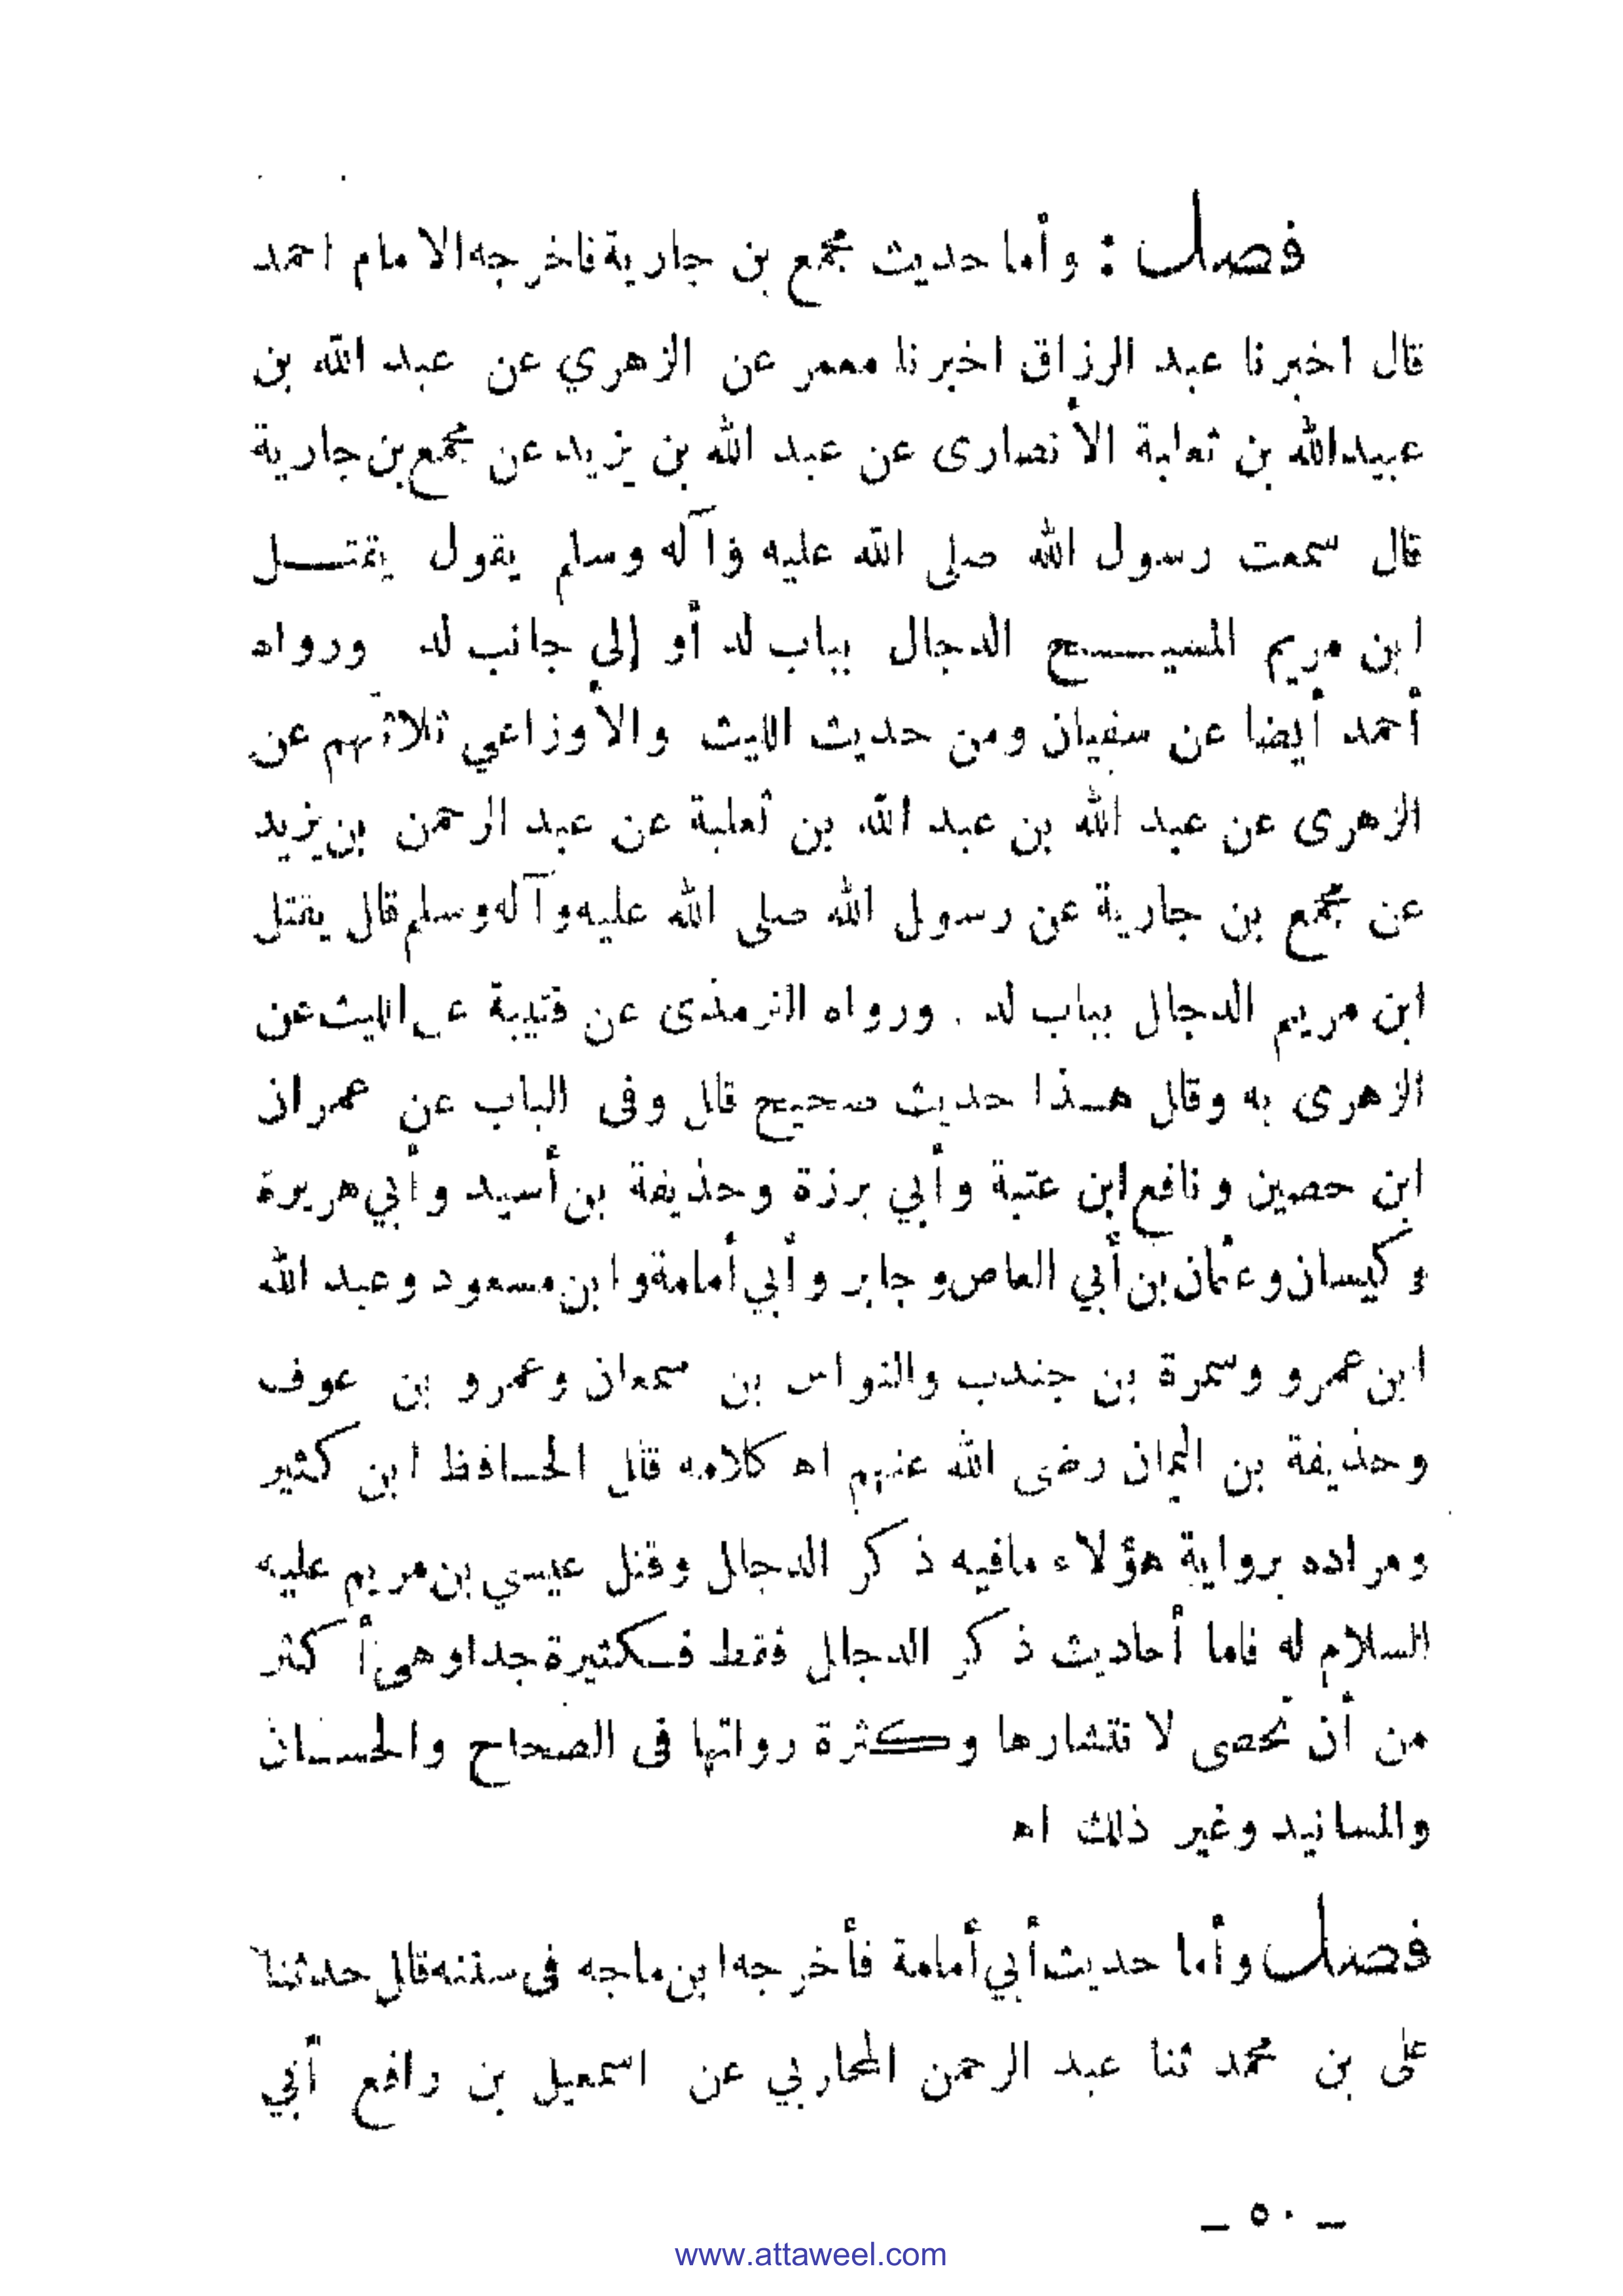 فصل : وأما حديث مجمع بن جارية فاخرجه الامام احمد
قال اخبرنا عبد الرزاق اخبرنا معمر عن الزهري عن عبد الله بن
عبيدالله بن ثعلبة الأنصارى عن عبد الله بن يزيد عن مجمع بن جارية
قال سمعت رسول الله صلى الله عليه وآله وسلم يقول يقتل
ابن مريم المسيح الدجال بباب لد أو إلى جانب لد ورواه
أحمد أيضا عن سفيان ومن حديث الليث والأوزاعي ثلاثتهم عن
الزهرى عن عبد الله بن عبد الله بن ثعلبة عن عبد الرحمن بن يزيد
عن مجمع بن جارية عن رسول الله صلى الله عليه وآله وسلم قال يقتل
ابن مريم الدجال بباب لد . ورواه الترمذى عن قتيبة عن الليث عن
الزهرى به وقال هذا حديث صحيح قال وفى الباب عن عمران
ابن حصين ونافع ابن عتبة وأبي برزة وحذيفة بن أسيد وأبي هريرة
وكيسان وعثمان بن أبي العاص وجابر وأبي أمامة وابن مسعود وعبد الله
ابن عمرو وسمرة بن جندب والنواس بن سمعان وعمرو بن عوف
وحذيفة بن اليمان رضى الله عنهم اه كلامه قال الحافظ ابن كثير
ومراده برواية هؤلاء مافيه ذكر الدجال وقتل عيسي بن مريم عليه
السلام له فاما أحاديث ذكر الدجال فقط فكثيرة جدا وهى أكثر
من أن تحصى لانتشارها وكثرة رواتها فى الصحاح والحسان
والمسانيد وغير ذلك اه
فصل وأما حديث أبي أمامة فأخرجه ابن ماجه فى سننه قال حدثنا
على بن محمد ثنا عبد الرحمن المحاربي عن اسمعيل بن رافع أبي
– ٥٠ –
www.attaweel.com